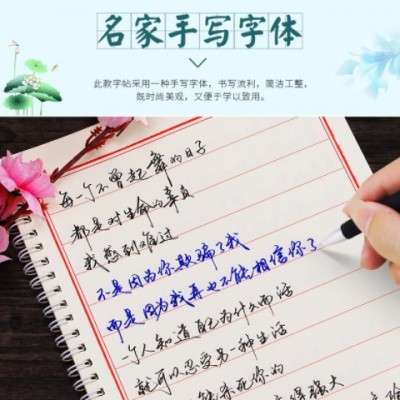 名家手写字体
此款字帖采用一种手写字体，书写流利，简洁工整，
既时尚美观，又便于学以致用。
每一个不曾起舞的日子
都是对生命的辜负
我感到难过
不是因为你欺骗了我
而是因为我再也不能相信你了
一个人知道自己为什么而活
就可以忍受另一种生活
能杀死你的
得强大